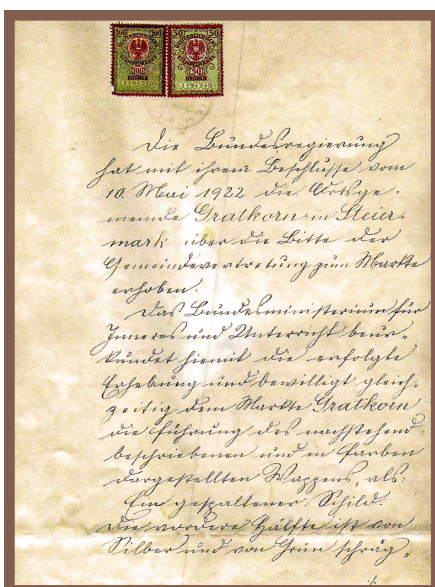 100 100 50 50
ÖSTERREICHISCHE ÖSTERREICHISCHE
STEMPELMARKE STEMPELMARKE
100 50
KRONEN KRONEN
Die Bundesregierung
hat mit ihrem Beschlusse vom
10. Mai 1922 die Ortsge-
meinde Gratkorn in Steier-
mark über die Bitte der
Gemeindevertretung zum Markte
erhoben.
Das Bundesministerium für
Inneres und Unterricht beur-
kundet hiemit die erfolgte
Erhebung und bewilligt gleich-
zeitig dem Markte Gratkorn
die Führung des nachstehend
beschriebenen und in Farben
dargestellten Wappens, als:
Ein gespaltener Schild.
Die vordere Hälfte ist von
Silber und von Grün schräg-
./.